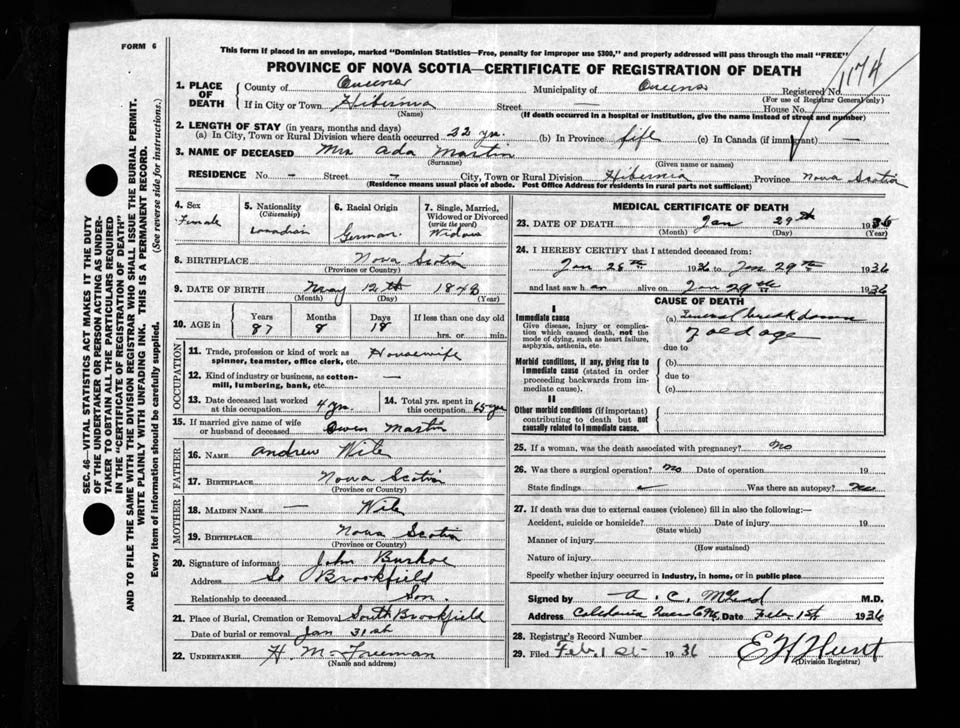 FORM 6
This form if placed in an envelope, marked "Dominion Statistics—Free, penalty for improper use $300," and properly addressed will pass through the mail "FREE"
PROVINCE OF NOVA SCOTIA—CERTIFICATE OF REGISTRATION OF DEATH
1174
1. PLACE OF DEATH
County of Queens Municipality of Queens Registered No.
(For use of Registrar General only)
If in City or Town Hibernia Street — House No.
(Name) (If death occurred in a hospital or institution, give the name instead of street and number)
2. LENGTH OF STAY (in years, months and days)
(a) In City, Town or Rural Division where death occurred 22 yr. (b) In Province life (c) In Canada (if immigrant) —
3. NAME OF DECEASED Mrs Ada Martin
(Surname) (Given name or names)
RESIDENCE No. — Street — City, Town or Rural Division Hibernia Province Nova Scotia
(Residence means usual place of abode. Post Office Address for residents in rural parts not sufficient)
4. Sex
Female
5. Nationality
(Citizenship)
Canadian
6. Racial Origin
German
7. Single, Married, Widowed or Divorced
(write the word)
Widow
8. BIRTHPLACE Nova Scotia
(Province or Country)
9. DATE OF BIRTH May 12th 1848
(Month) (Day) (Year)
10. AGE in
Years Months Days If less than one day old
87 8 18 hrs. or min.
OCCUPATION
11. Trade, profession or kind of work as spinner, teamster, office clerk, etc. Housewife
12. Kind of industry or business, as cotton-mill, lumbering, bank, etc. —
13. Date deceased last worked at this occupation 4 yr.
14. Total yrs. spent in this occupation 65 yr
15. If married give name of wife or husband of deceased Owen Martin
FATHER
16. NAME Andrew Wile
17. BIRTHPLACE Nova Scotia
(Province or Country)
MOTHER
18. MAIDEN NAME — Wile
19. BIRTHPLACE Nova Scotia
(Province or Country)
20. Signature of informant John
Address So Brookfield
Relationship to deceased Son.
21. Place of Burial, Cremation or Removal South Brookfield
Date of burial or removal Jan 31st
22. UNDERTAKER H. M. Freeman
(Name and address)
MEDICAL CERTIFICATE OF DEATH
23. DATE OF DEATH Jan 29th 1936
(Month) (Day) (Year)
24. I HEREBY CERTIFY that I attended deceased from:
Jan 28th 1936 to Jan 29th 1936
and last saw her alive on Jan 29th 1936
CAUSE OF DEATH
I
Immediate cause
Give disease, injury or complication which caused death, not the mode of dying, such as heart failure, asphyxia, asthenia, etc.
(a) General breakdown
of old age
due to
Morbid conditions, if any, giving rise to immediate cause (stated in order proceeding backwards from immediate cause).
(b)
due to
(c)
II
Other morbid conditions (if important) contributing to death but not causally related to immediate cause.
25. If a woman, was the death associated with pregnancy? No
26. Was there a surgical operation? No Date of operation 19
State findings Was there an autopsy? No
27. If death was due to external causes (violence) fill in also the following:—
Accident, suicide or homicide? Date of injury 19
(State which)
Manner of injury
(How sustained)
Nature of injury
Specify whether injury occurred in industry, in home, or in public place
Signed by A. C. M.D.
Address Caledonia Queens Co NS. Date Feb. 1st 1936
28. Registrar's Record Number
29. Filed Feb. 1st 1936 E H Hunt
(Division Registrar)
SEC. 46—VITAL STATISTICS ACT MAKES IT THE DUTY
OF THE UNDERTAKER OR PERSON ACTING AS UNDER-
TAKER TO OBTAIN ALL THE PARTICULARS REQUIRED
IN THE "CERTIFICATE OF REGISTRATION OF DEATH"
AND TO FILE THE SAME WITH THE DIVISION REGISTRAR WHO SHALL ISSUE THE BURIAL PERMIT.
WRITE PLAINLY WITH UNFADING INK. THIS IS A PERMANENT RECORD.
Every item of information should be carefully supplied. (See reverse side for instructions.)